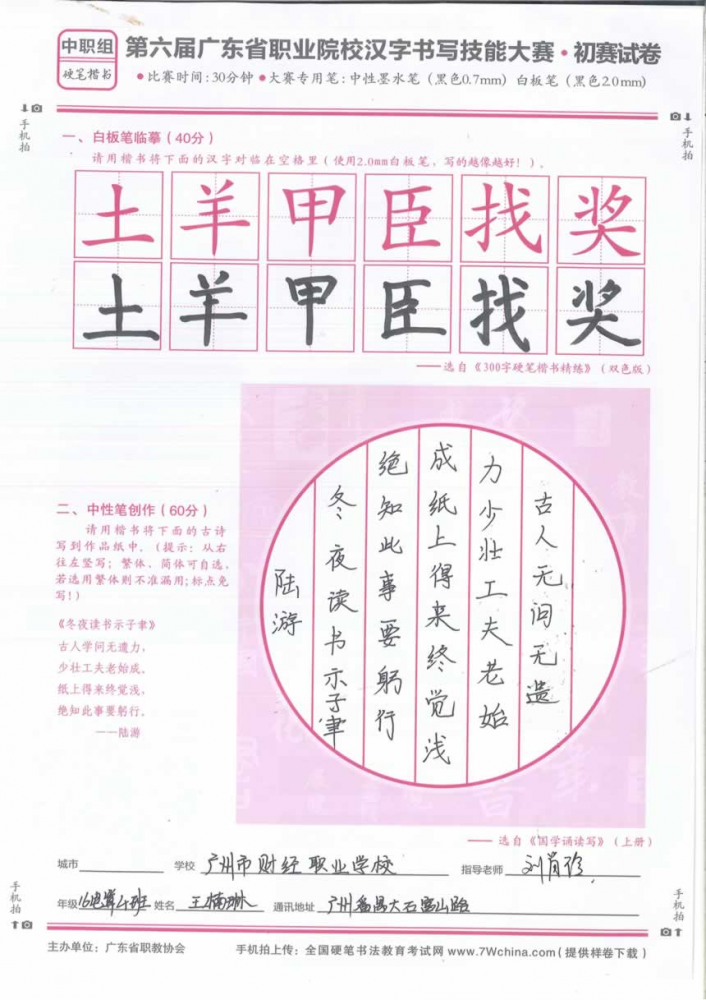 中职组
硬笔楷书
第六届广东省职业院校汉字书写技能大赛·初赛试卷
●比赛时间:30分钟 ●大赛专用笔:中性墨水笔（黑色0.7mm）白板笔（黑色2.0mm）
手机拍
手机拍
一、白板笔临摹（40分）
请用楷书将下面的汉字对临在空格里（使用2.0mm白板笔，写的越像越好！）。
土羊甲臣找奖
土羊甲臣找奖
——选自《300字硬笔楷书精练》（双色版）
二、中性笔创作（60分）
请用楷书将下面的古诗
写到作品纸中。（提示：从右
往左竖写；繁体、简体可自选，
若选用繁体则不准漏用;标点免
写!）
《冬夜读书示子聿》
古人学问无遗力，
少壮工夫老始成。
纸上得来终觉浅，
绝知此事要躬行。
——陆游
古人无问无遗
力少壮工夫老始
成纸上得来终觉浅
绝知此事要躬行
冬夜读书示子聿
陆游
——选自《国学诵读写》（上册）
城市 学校 广州市财经职业学校 指导老师 刘肖玲
年级 16电算4班 姓名 王楠琳 通讯地址 广州番禺大石富山路
手机拍
手机拍
主办单位：广东省职教协会 手机拍上传：全国硬笔书法教育考试网 www.7Wchina.com（提供样卷下载）